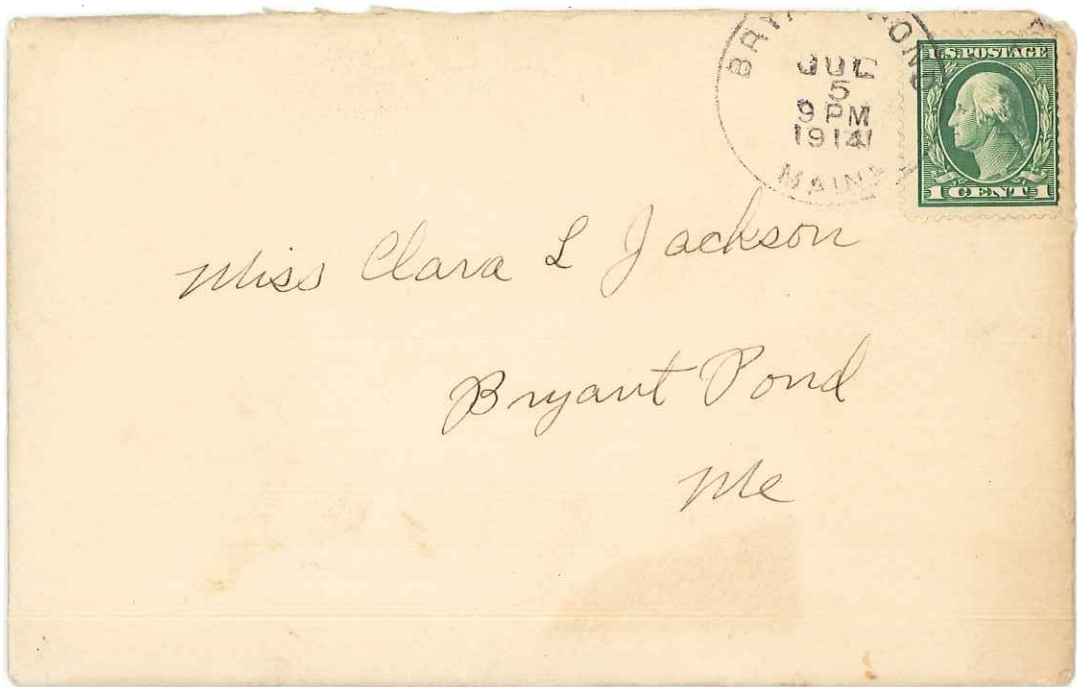 BRYANT POND
JUL
5
9 PM
1914
MAINE
U.S. POSTAGE
1 CENT 1
Miss Clara L Jackson
Bryant Pond
Me